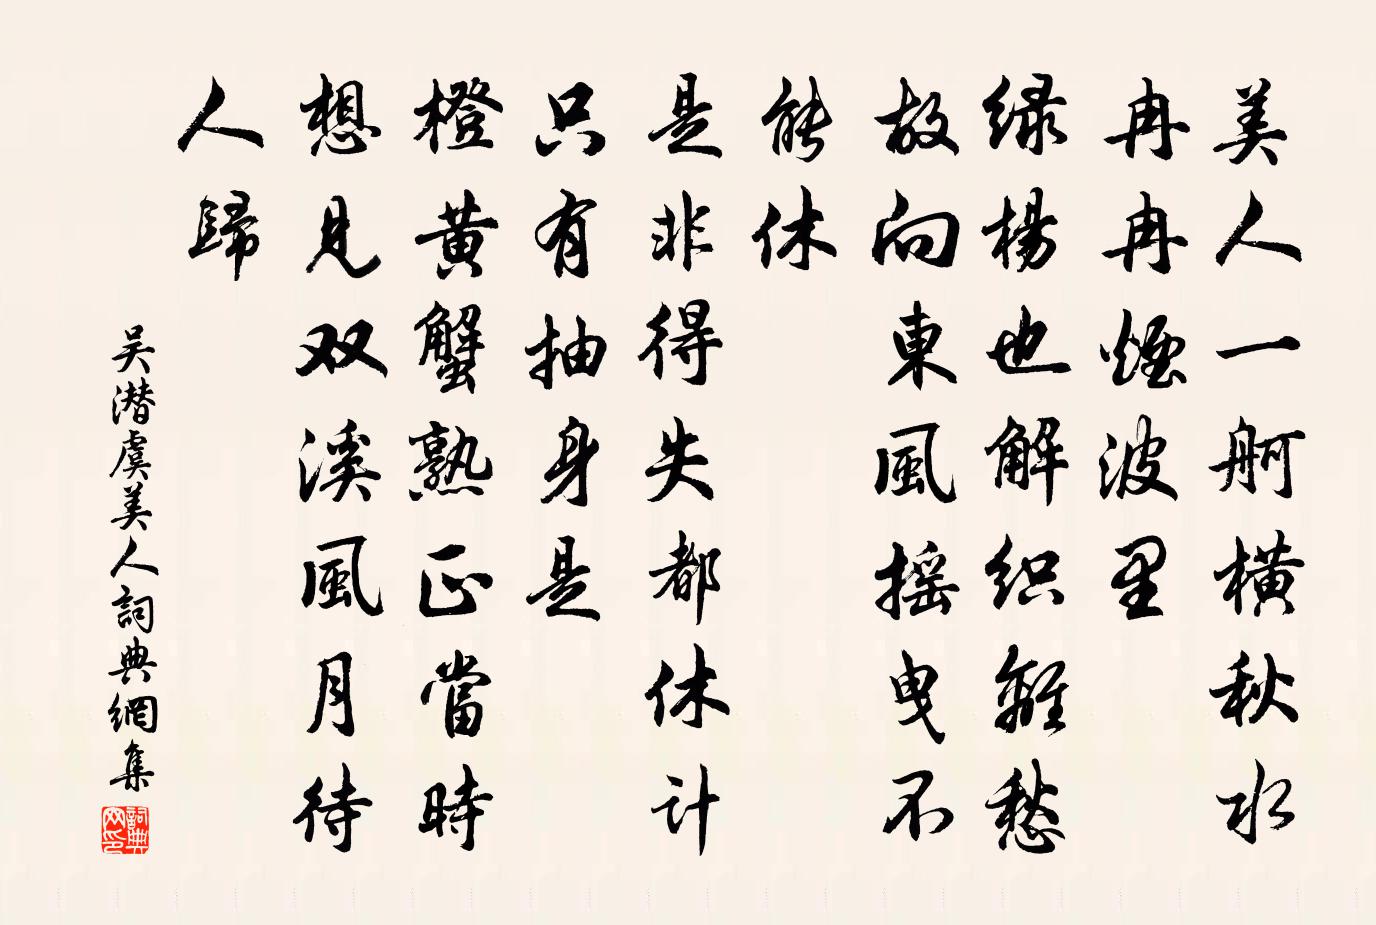 美人一舸橫秋水
冉冉煙波里
绿楊也解织離愁
故向東風摇曳不
能休
是非得失都休计
只有抽身是
橙黄蟹熟正當時
想見双溪風月待
人歸
吴潜虞美人詞典網集
詞典
网印